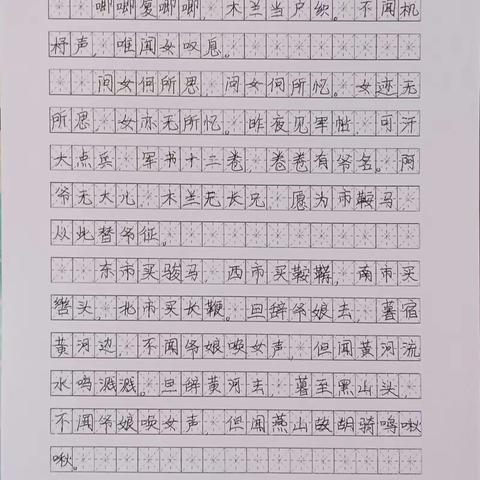 唧唧复唧唧，木兰当户织。不闻机
杼声，唯闻女叹息。
问女何所思，问女何所忆。女亦无
所思，女亦无所忆。昨夜见军帖，可汗
大点兵，军书十二卷，卷卷有爷名。阿
爷无大儿，木兰无长兄，愿为市鞍马，
从此替爷征。
东市买骏马，西市买鞍鞯，南市买
辔头，北市买长鞭。旦辞爷娘去，暮宿
黄河边，不闻爷娘唤女声，但闻黄河流
水鸣溅溅。旦辞黄河去，暮至黑山头，
不闻爷娘唤女声，但闻燕山故胡骑鸣啾
啾。